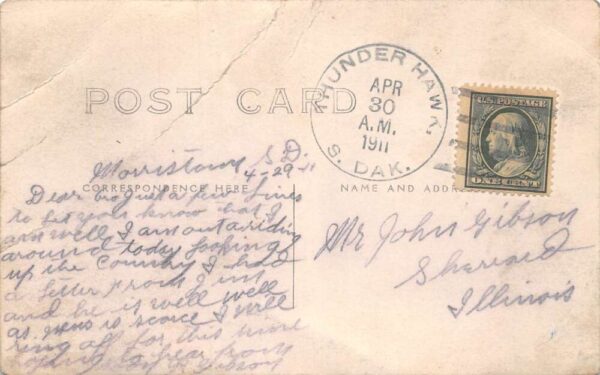 POST CARD
THUNDER HAWK,
APR
30
A.M.
1911
S. DAK.
U.S. POSTAGE
ONE CENT
Morristown S D.
4-29-11
CORRESPONDENCE HERE
NAME AND ADDR
Dear bro Just a few lines
to let you know that I
am well I am out a riding
around today looking
up the Country I had
a letter from J
and he is well well
as news is scarce I will
ring off for this time
hoping to hear from
Gibson
Mr John Gibson
Sherrard
Illinois